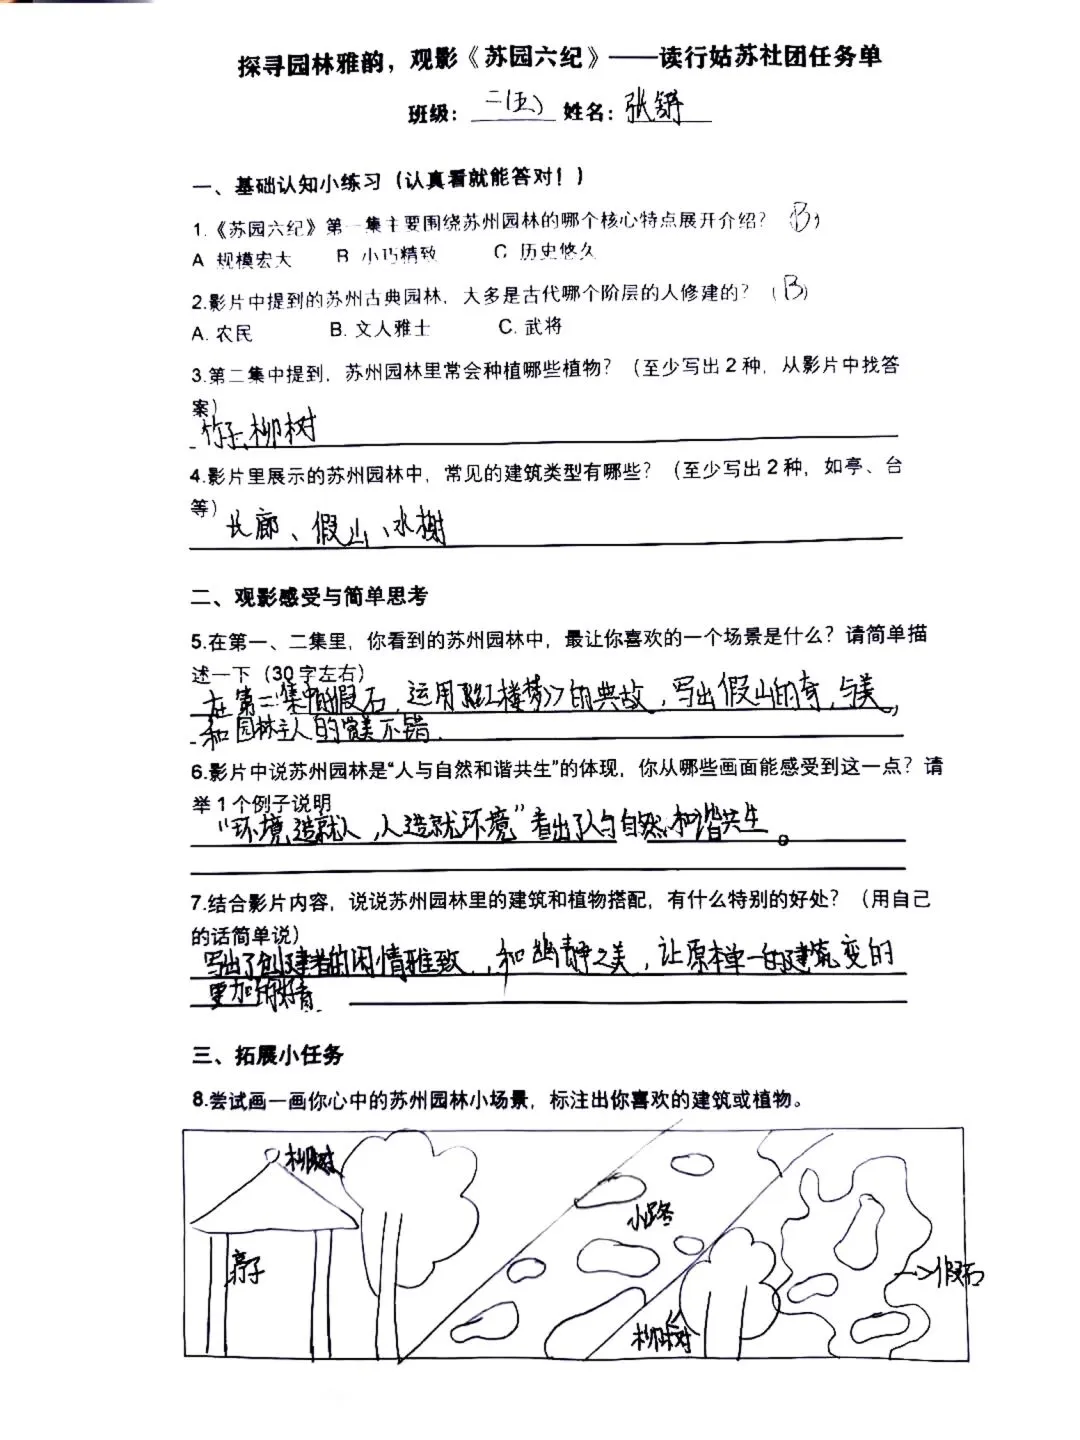 探寻园林雅韵，观影《苏园六纪》——读行姑苏社团任务单
班级：二(五) 姓名：张
一、基础认知小练习（认真看就能答对！）
1.《苏园六纪》第一集主要围绕苏州园林的哪个核心特点展开介绍？（B）
A 规模宏大 B 小巧精致 C 历史悠久
2.影片中提到的苏州古典园林，大多是古代哪个阶层的人修建的？（B）
A. 农民 B. 文人雅士 C. 武将
3.第二集中提到，苏州园林里常会种植哪些植物？（至少写出2种，从影片中找答
案）
竹子、柳树
4.影片里展示的苏州园林中，常见的建筑类型有哪些？（至少写出2种，如亭、台
等）
长廊、假山、水榭
二、观影感受与简单思考
5.在第一、二集里，你看到的苏州园林中，最让你喜欢的一个场景是什么？请简单描
述一下（30字左右）
在第二集中的假石，运用《红楼梦》的典故，写出假山的奇，与美，
和园林主人的赏美不错.
6.影片中说苏州园林是“人与自然和谐共生”的体现，你从哪些画面能感受到这一点？请
举1个例子说明
“环境造就人，人造就环境”看出了人与自然和谐共生。
7.结合影片内容，说说苏州园林里的建筑和植物搭配，有什么特别的好处？（用自己
的话简单说）
写出了创建者的闲情雅致，和幽静之美，让原本单一的建筑变的
更加的好看.
三、拓展小任务
8.尝试画一画你心中的苏州园林小场景，标注出你喜欢的建筑或植物。
柳树
小路
亭子
假石
柳树